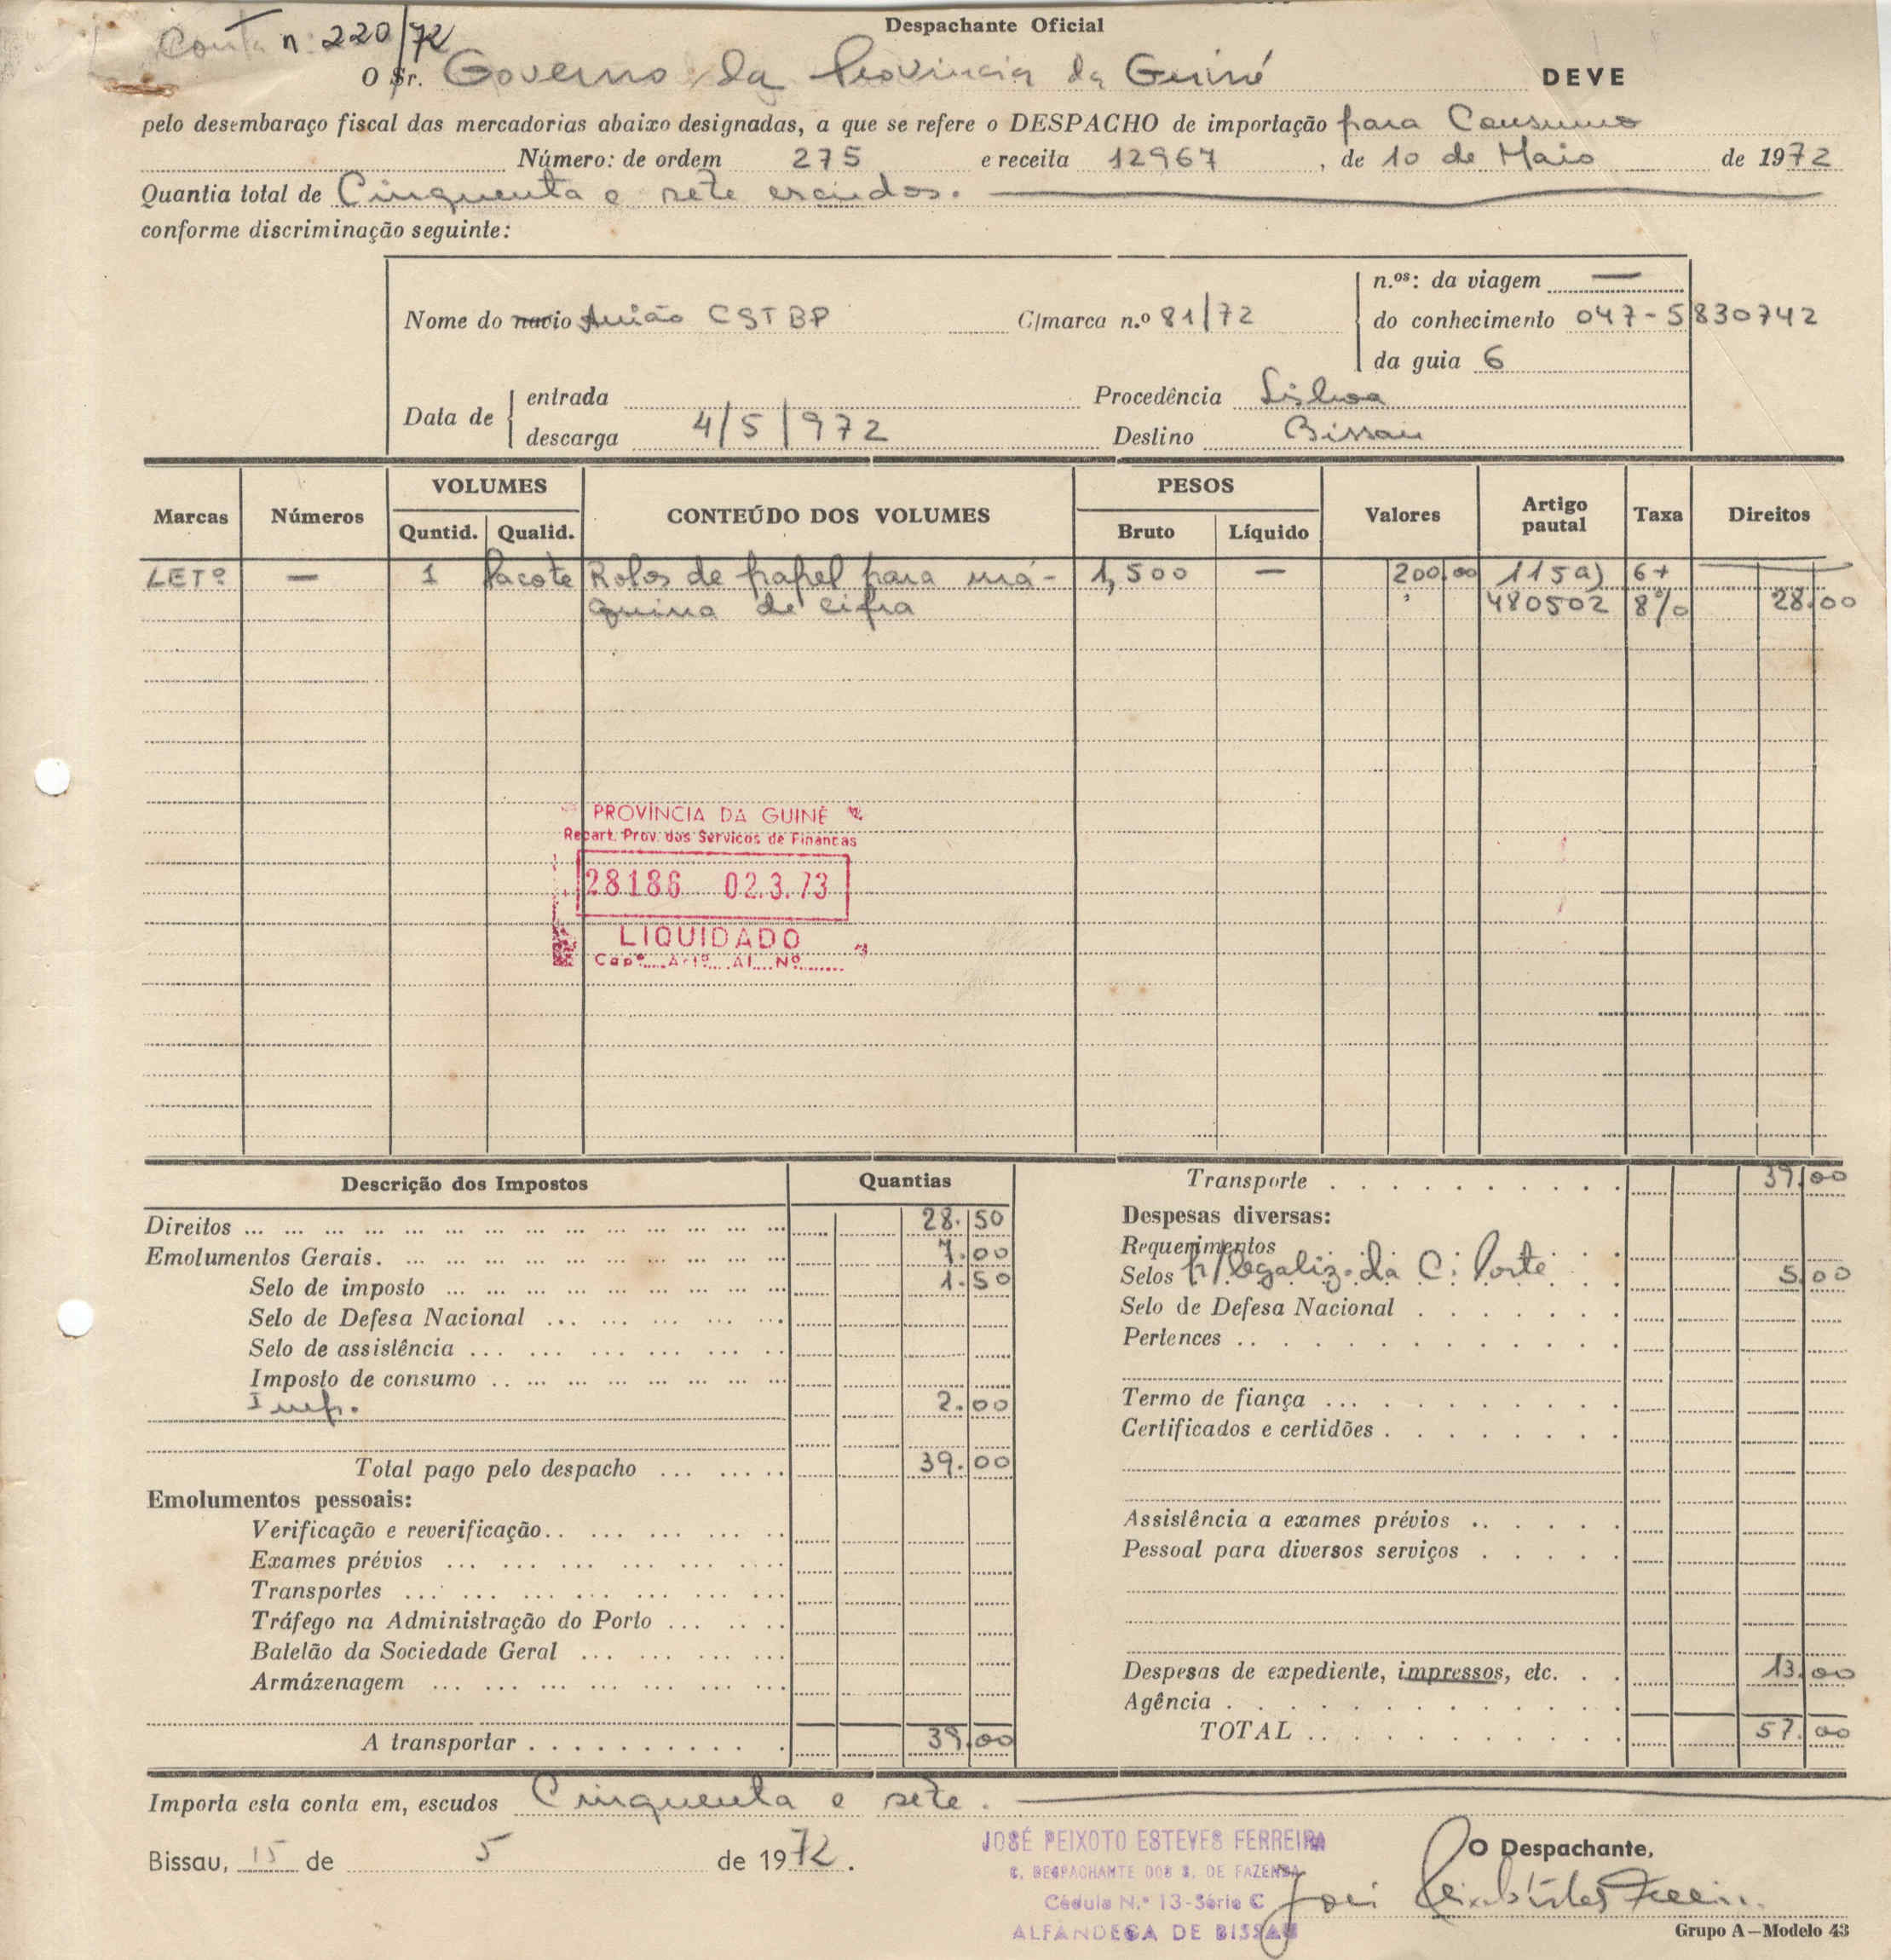 Conta n: 220/72
Despachante Oficial
O Sr. Governo da Provincia da Guiné DEVE
pelo desembaraço fiscal das mercadorias abaixo designadas, a que se refere o DESPACHO de importação para Consumo
Número: de ordem 275 e receita 12967, de 10 de Maio de 1972
Quantia total de Cinquenta e sete escudos.
conforme discriminação seguinte:
n.os: da viagem —
Nome do navio Avião CSTBP C/marca n.o 81/72 do conhecimento 047-5830742
da guia 6
Data de entrada Procedência Lisboa
descarga 4/5/972 Destino Bissau
Marcas Números VOLUMES CONTEÚDO DOS VOLUMES PESOS Valores Artigo pautal Taxa Direitos
Quntid. Qualid. Bruto Líquido
LETº — 1 Pacote Rolos de papel para má- 1,500 — 200.00 115a) 6+
quina de cifra 480502 8% 28.00
PROVÍNCIA DA GUINÉ
Repart. Prov. dos Serviços de Finanças
28186 02.3.73
LIQUIDADO
Capº.... Artº.... Al.... Nº.......
Descrição dos Impostos Quantias
Direitos 28.50
Emolumentos Gerais. 7.00
Selo de imposto 1.50
Selo de Defesa Nacional
Selo de assistência
Imposto de consumo
Imp. 2.00
Total pago pelo despacho 39.00
Emolumentos pessoais:
Verificação e reverificação
Exames prévios
Transportes
Tráfego na Administração do Porto
Batelão da Sociedade Geral
Armázenagem
A transportar 39.00
Transporte 39.00
Despesas diversas:
Requerimentos
Selos p/legaliz. da C. Porte 5.00
Selo de Defesa Nacional
Pertences
Termo de fiança
Certificados e certidões
Assistência a exames prévios
Pessoal para diversos serviços
Despesas de expediente, impressos, etc. 13.00
Agência
TOTAL 57.00
Importa esta conta em, escudos Cinquenta e sete.
Bissau, 15 de 5 de 1972.
JOSÉ PEIXOTO ESTEVES FERREIRA
C. DESPACHANTE DOS S. DE FAZENDA
Cédula N.º 13-Série C
ALFÂNDEGA DE BISSAU
O Despachante,
Grupo A—Modelo 43